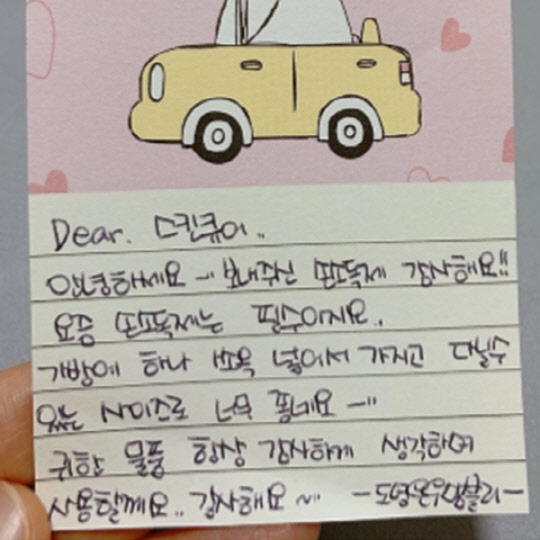 Dear. 스킨큐어..
안녕하세요 ~ 보내주신 손소독제 감사해요!!
요즘 손소독제는 필수이지요..
가방에 하나 쏘옥 넣어서 가지고 다닐수
있는 사이즈로 너무 좋네요 ~"
귀한 물품 항상 감사하게 생각하며
사용할께요.. 감사해요 ~"